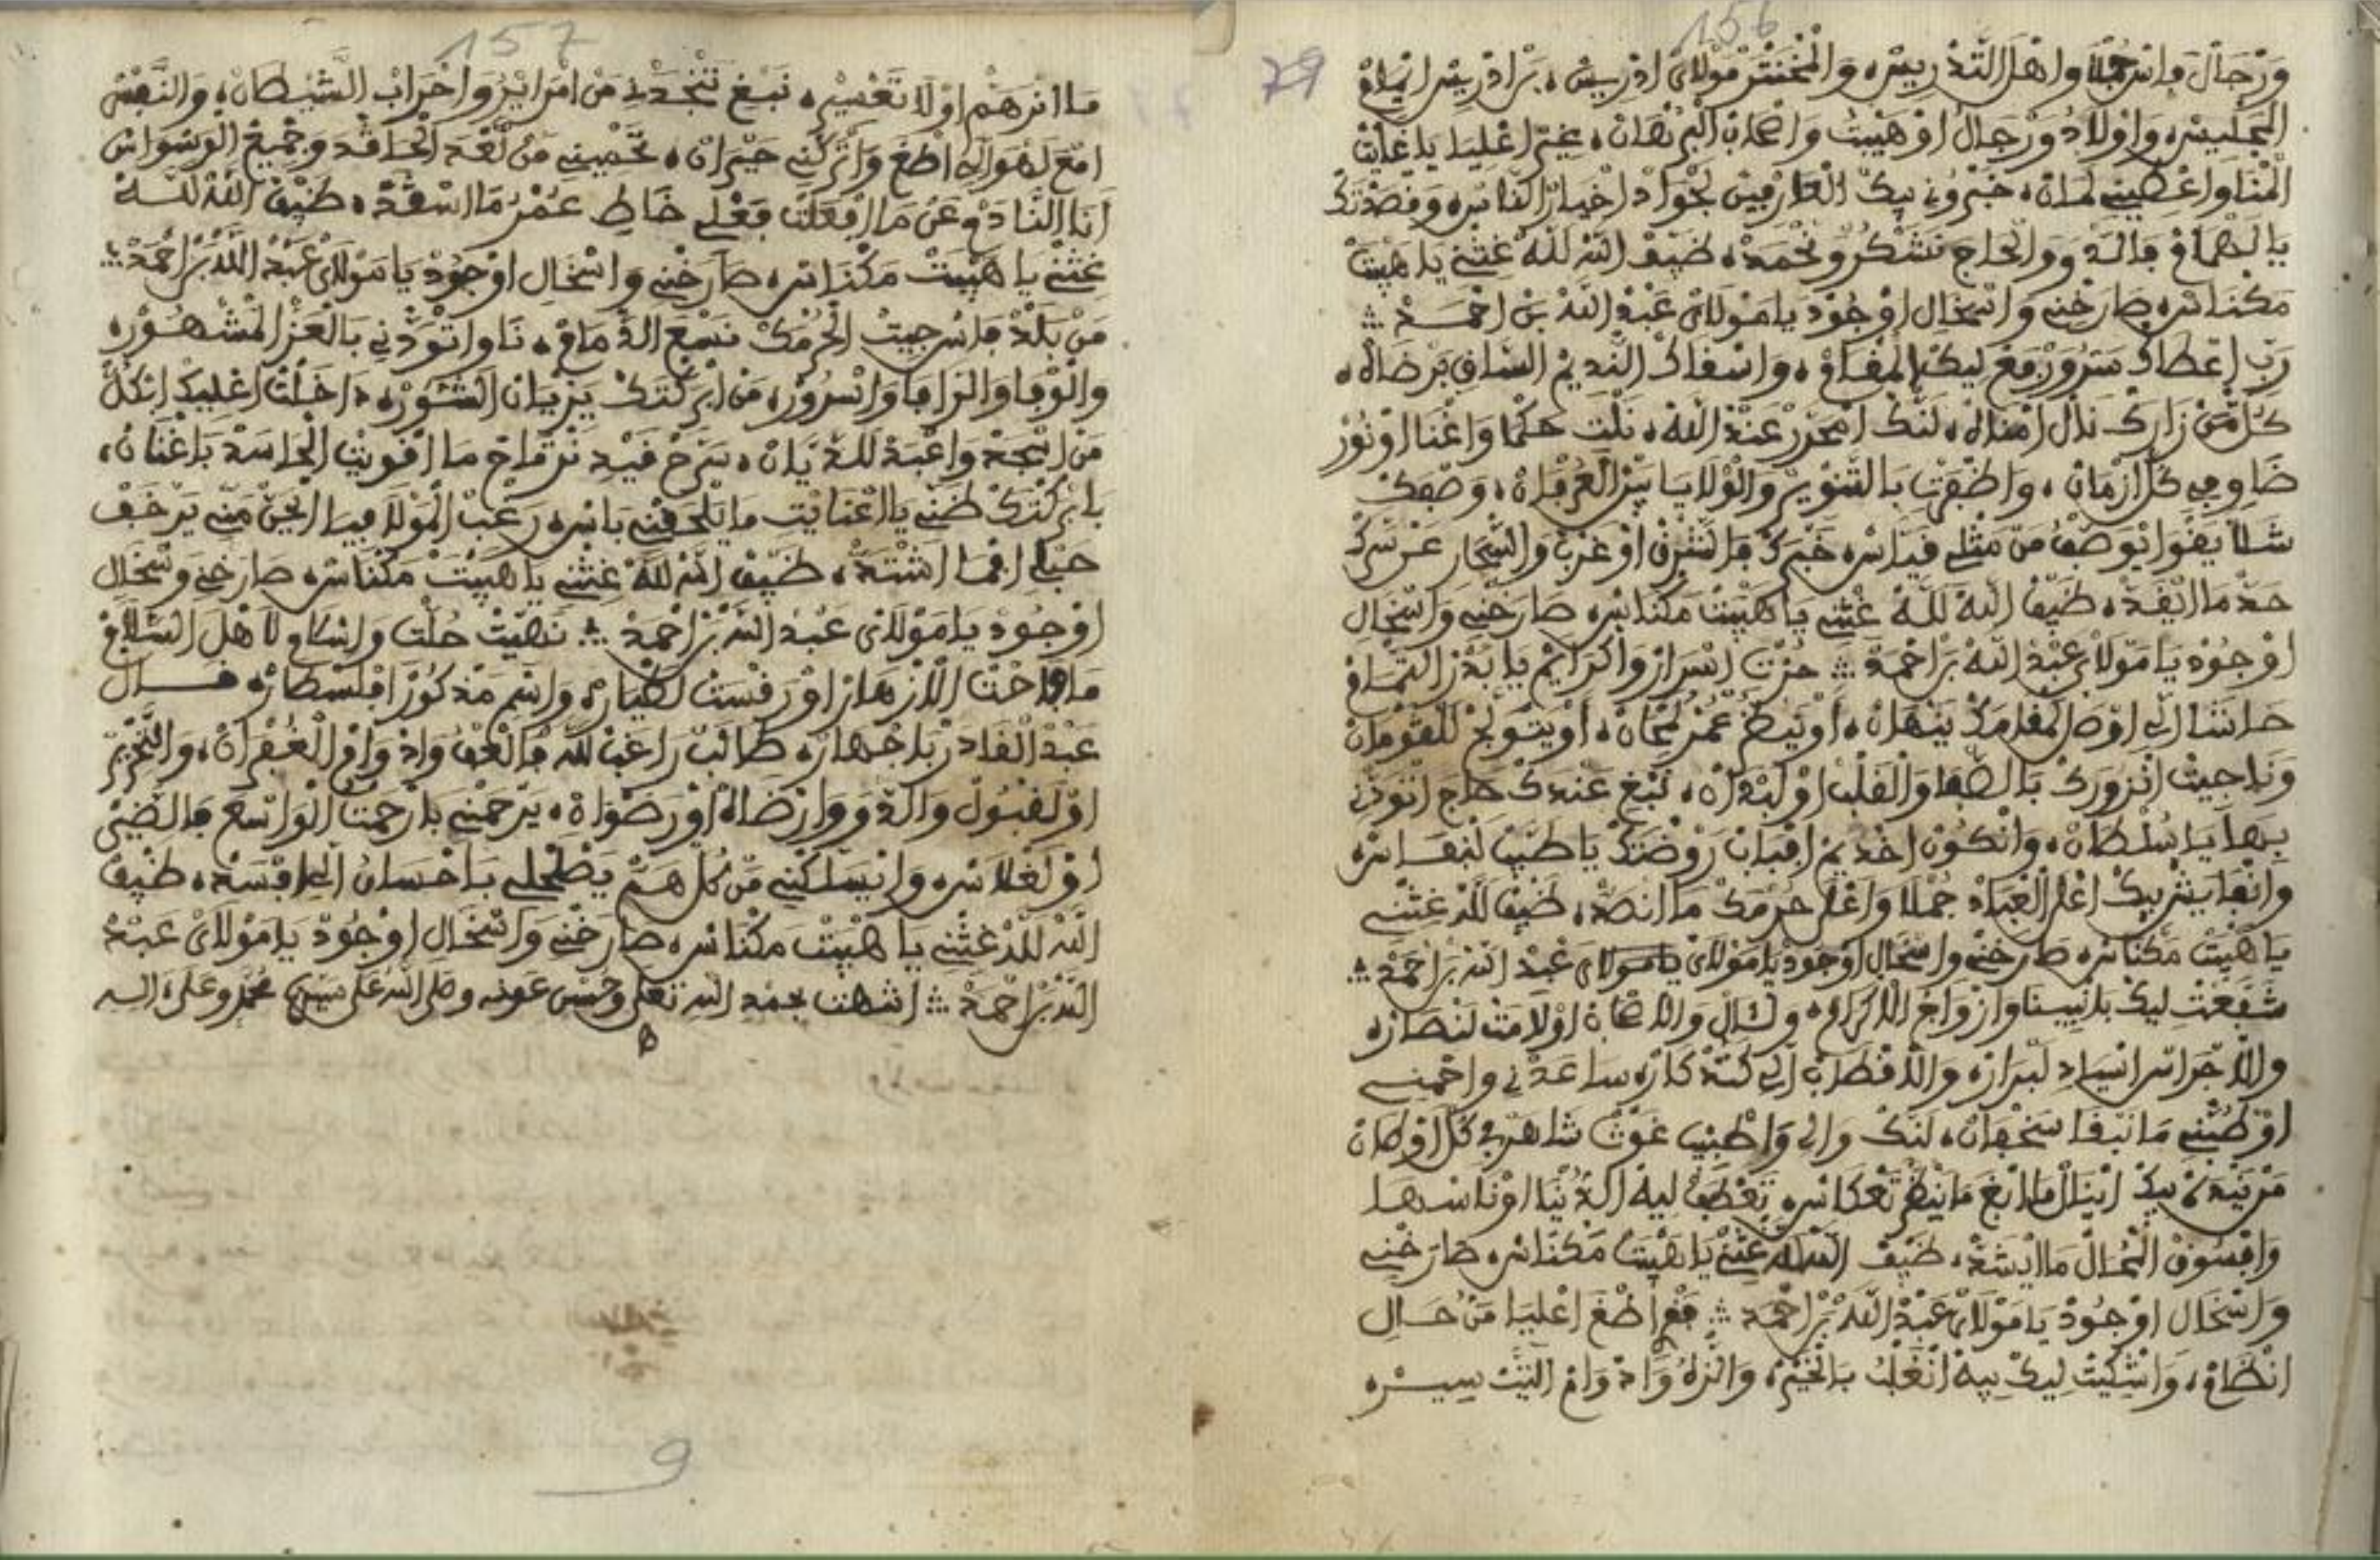 156
79
ورجال فاس جملا واهل التدريس، والمختتر مولاي ادريس، بزادريس انيام
البجليس، واولاد ورجال اوهيبت واصحاب البرهان، غير اغليا ياغايت
المنا واعطيني لمان، خبروني بيك العارفين لجواد اخيار الناس، وفصدتك
يا لهمام فالد ووالحاج نشكر ونحمد، ضيف الله لله غثني يا هيبت
مكناس، صارخني واسخال اوجود يا مولاي عبد الله بن احمد
رب اعطاك سرور مع ليك المقام، واسقاك النديم الساقي برضاه،
كل من زارك نال امناه، لنك امحرر عند الله، نلت حكما واغنا اونور
ضاوي في كل ازمان، واظفرت بالتنوير والولايا بين العرفان، وصفك
شلا يقوا يوصف من مثلي فياس، خبرك فالشرق اوغرب والسحار عن سرك
حد ما اينفد، ضيف الله لله غثني يا هيبت مكناس، صارخني واسخال
اوجود يا مولاي عبد الله بن احمد حزت اسرار واكرايم يا بدر التمام
حاشا الي اوصل لمقامك ينهان، اويضيع عمر لمحان، اويتوبخ للقومان
ونا جيت انزورك بالصفا والقلب اولبدان، نبغ عندك حاج اتودني
بها يا سلطان، وانكون اخديم افباب روضتك يا طبيب لنفاس،
وانفايش بيك اعلى العباد جملا واعلى حرمك ما انصد، ضيف لله غثني
يا هيبت مكناس، صارخني واسخال اوجود يا مولاي يا مولاي عبد الله بن احمد
شفعت ليك بلنبينا وازواج الاكرام، ولال والاصحاب اولامت لنصار،
والاجراس اسياد لبرار، والاقطاب الي كتدكار، ساعدني واحميني
اوطبني ما نبقا سخفان، لنك والي واطبيب غوث شاهر في كل اوطان
من يندهم بيك اينال ما ابغ ما ينظر تعكاس، تعطف ليه الدنيا اوناسها
وافسوق المحال ما ايشد، ضيف الله لله غثني يا هيبت مكناس، صارخني
واسخال اوجود يا مولاي عبد الله بن احمد فع اطغ اعليا من حال
انظام، واشكيت ليك بيه انغلب بالخير، وانزه واد وام اليت سير،
157
ما انرهم اولا تغسير، نبغ تنجدني من امرايروا حزاب الشيطان، والنفس
امع لهوا لي اطغ واتركني حيران، تحميني من لغد الحاقد وجميع الوسواس
انا النادم عن ما افعلت فعلي خاط عمر ما اسقد، ضيف الله لله
غثني يا هيبت مكناس، صارخني واسخال اوجود يا مولاي عبد الله بن احمد
من بلد فاس جيت الحرمك نسع الدمام، نا واتودني بالعز المشهور،
والوفا والرافا والسرور، من ابركتك يزيان الشور، داخلت اعليك ابكل
من اسجد واعبد للديان، سرح فيد نرتاح ما افويت الحاسد باغنان،
بابركتك ظني يا العنايت ما يلحقني باس، رغب المولا فيا الحن مني يرخف
حبلي افما اشتد، ضيف الله لله غثني يا هيبت مكناس، صارخني وسخال
اوجود يا مولاي عبد الله بن احمد نهيت حلت واسلام لاهل السلام
مافاحت الازهار اورفست لطيار، واسم مذكور افلسطار، فال
عبد القادر باجهار، طالب راغب لله فالعف واد وام الغفران، والتحرير
اولقبول والد ووارضاه اورضوان، يرحمني بارحمت الواسع فالضيق
اولغلاس، وانيسلكني من كل هم يصلحلي باحسان الي افسد، ضيف
الله لله غثني يا هيبت مكناس، صارخني واسخال اوجود يا مولاي عبد
الله بن احمد انتهت بحمد الله تعلى وحسن عونه وصلى الله على سيدنا محمد وعلى اله
9